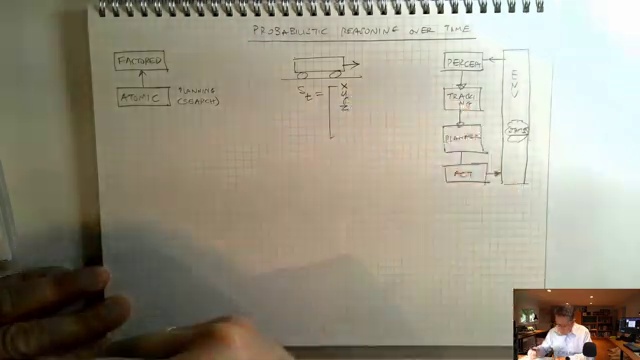 PROBABILISTIC REASONING OVER TIME
FACTORED
ATOMIC
PLANNING
(SEARCH)
St =
X
Y
Z
PERCEPT
TRACKI
NG
PLANNER
ACT
ENV
STATE